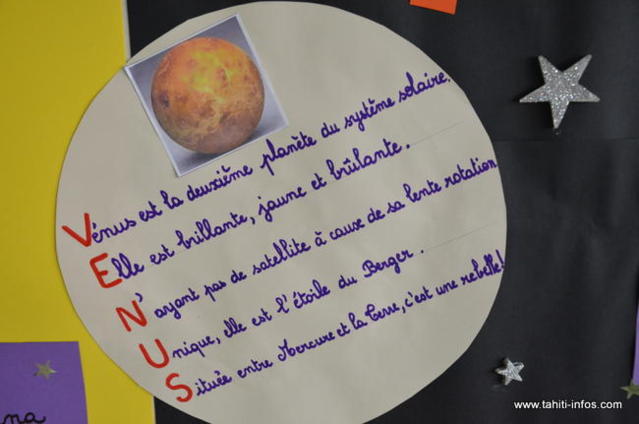 Vénus est la deuxième planète du système solaire.
Elle est brillante, jaune et brûlante.
N'ayant pas de satellite à cause de sa lente rotation
Unique, elle est l'étoile du Berger.
Située entre Mercure et la Terre, c'est une rebelle!
na
www.tahiti-infos.com